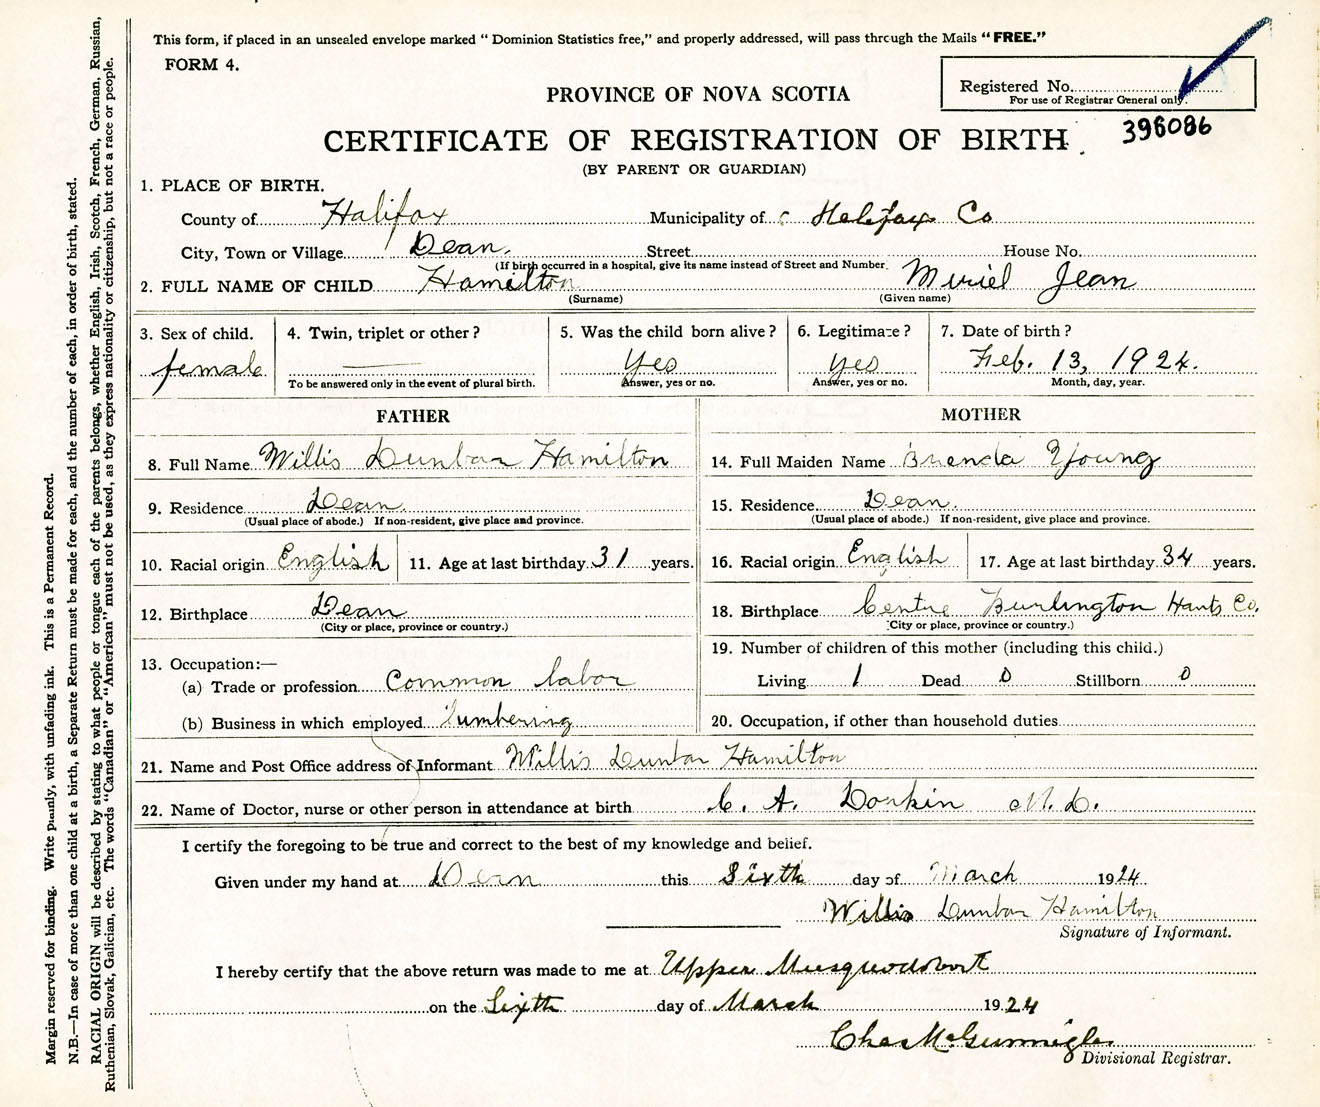 This form, if placed in an unsealed envelope marked “ Dominion Statistics free,” and properly addressed, will pass through the Mails “ FREE.”
FORM 4.
Registered No.
For use of Registrar General only.
398086
PROVINCE OF NOVA SCOTIA
CERTIFICATE OF REGISTRATION OF BIRTH
(BY PARENT OR GUARDIAN)
1. PLACE OF BIRTH.
County of Halifax Municipality of Halifax Co
City, Town or Village Dean. Street House No.
(If birth occurred in a hospital, give its name instead of Street and Number.
2. FULL NAME OF CHILD Hamilton Muriel Jean
(Surname) (Given name)
3. Sex of child. 4. Twin, triplet or other? 5. Was the child born alive? 6. Legitimate? 7. Date of birth?
female — Yes Yes Feb. 13, 1924.
To be answered only in the event of plural birth. Answer, yes or no. Answer, yes or no. Month, day, year.
FATHER MOTHER
8. Full Name Willis Dunbar Hamilton 14. Full Maiden Name Brenda Young
9. Residence Dean. 15. Residence Dean.
(Usual place of abode.) If non-resident, give place and province. (Usual place of abode.) If non-resident, give place and province.
10. Racial origin English 11. Age at last birthday 31 years. 16. Racial origin English 17. Age at last birthday 34 years.
12. Birthplace Dean 18. Birthplace Centre Burlington Hants Co.
(City or place, province or country.) (City or place, province or country.)
13. Occupation:— 19. Number of children of this mother (including this child.)
(a) Trade or profession Common labor Living 1 Dead 0 Stillborn 0
(b) Business in which employed lumbering 20. Occupation, if other than household duties
21. Name and Post Office address of Informant Willis Dunbar Hamilton
22. Name of Doctor, nurse or other person in attendance at birth C. A. Dorkin M. D.
I certify the foregoing to be true and correct to the best of my knowledge and belief.
Given under my hand at Dean this Sixth day of March 1924
Willis Dunbar Hamilton
Signature of Informant.
I hereby certify that the above return was made to me at Upper Musquodoboit
on the Sixth day of March 1924
Chas McGunnigle
Divisional Registrar.
Margin reserved for binding. Write plainly, with unfading ink. This is a Permanent Record.
N.B.—In case of more than one child at a birth, a Separate Return must be made for each, and the number of each, in order of birth, stated.
RACIAL ORIGIN will be described by stating to what people or tongue each of the parents belongs, whether English, Irish, Scotch, French, German, Russian,
Ruthenian, Slovak, Galician, etc. The words “Canadian” or “American” must not be used, as they express nationality or citizenship, but not a race or people.